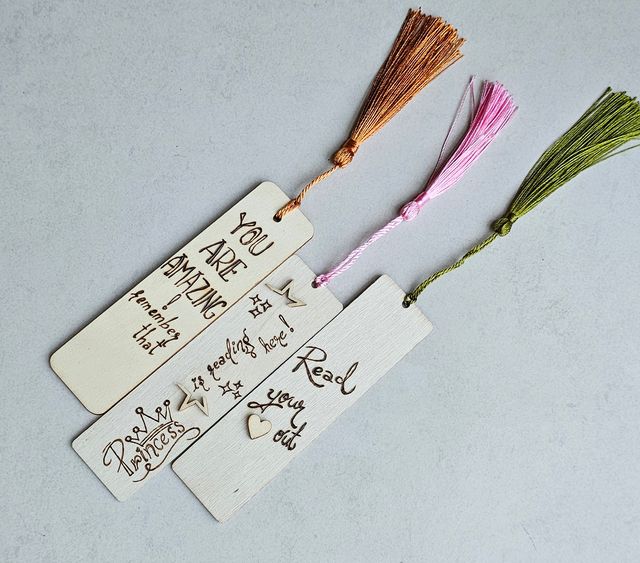 YOU
ARE
AMAZING
!
remember
that
Princess
is reading here!
Read
your
out